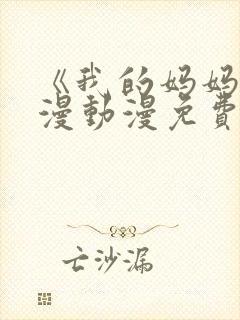 《我的妈妈
漫動漫免費
亡沙漏